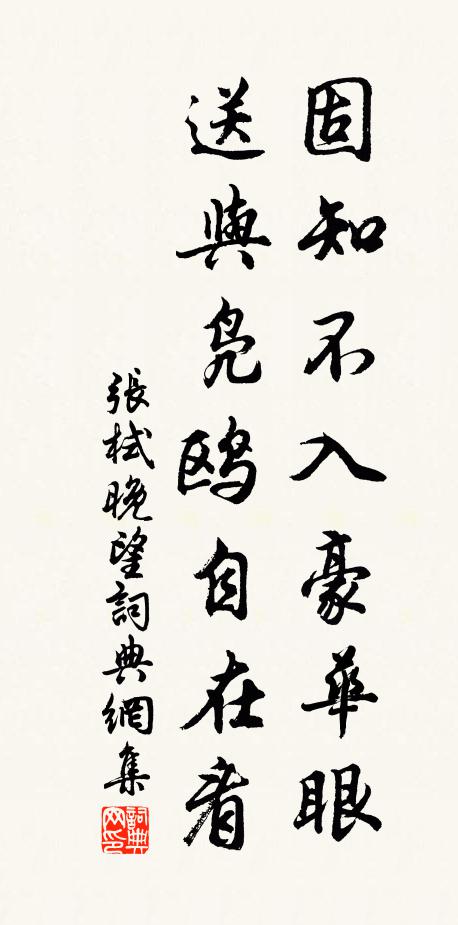 固知不入豪華眼
送與鳧鷗自在看
張栻晚望詞典網集
詞典網印